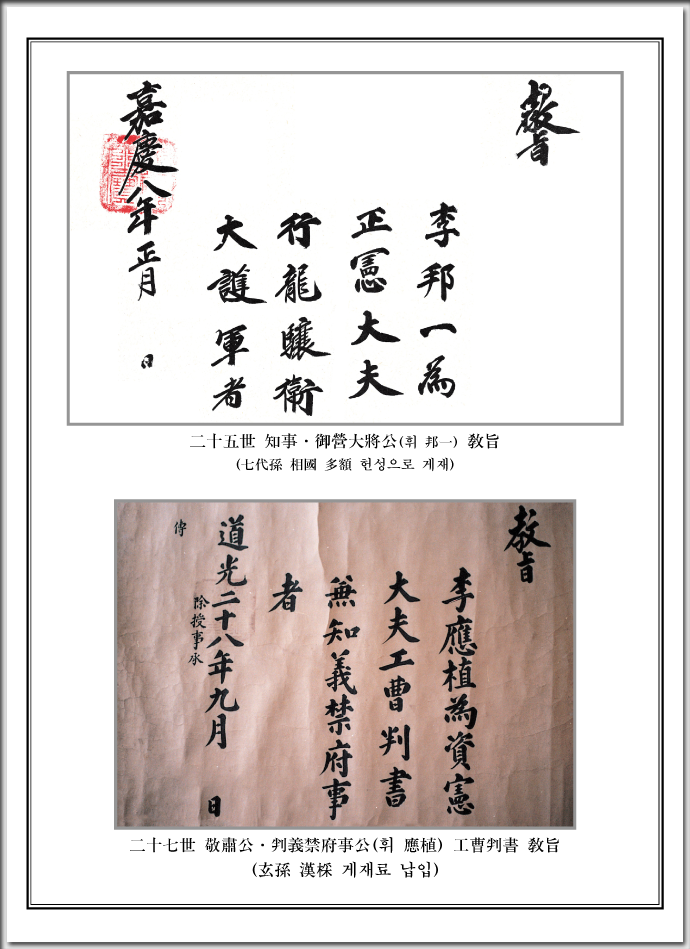 敎旨
李邦一為
正憲大夫
行龍驤衛
大護軍者
嘉慶八年正月 日
二十五世 知事·御營大將公(휘 邦一) 敎旨
(七代孫 相國 多額 헌성으로 게재)
敎旨
李應植為資憲
大夫工曹判書
兼知義禁府事
者
道光二十八年九月 日
除授事承
傳
二十七世 敬肅公·判義禁府事公(휘 應植) 工曹判書 敎旨
(玄孫 漢棌 게재료 납입)